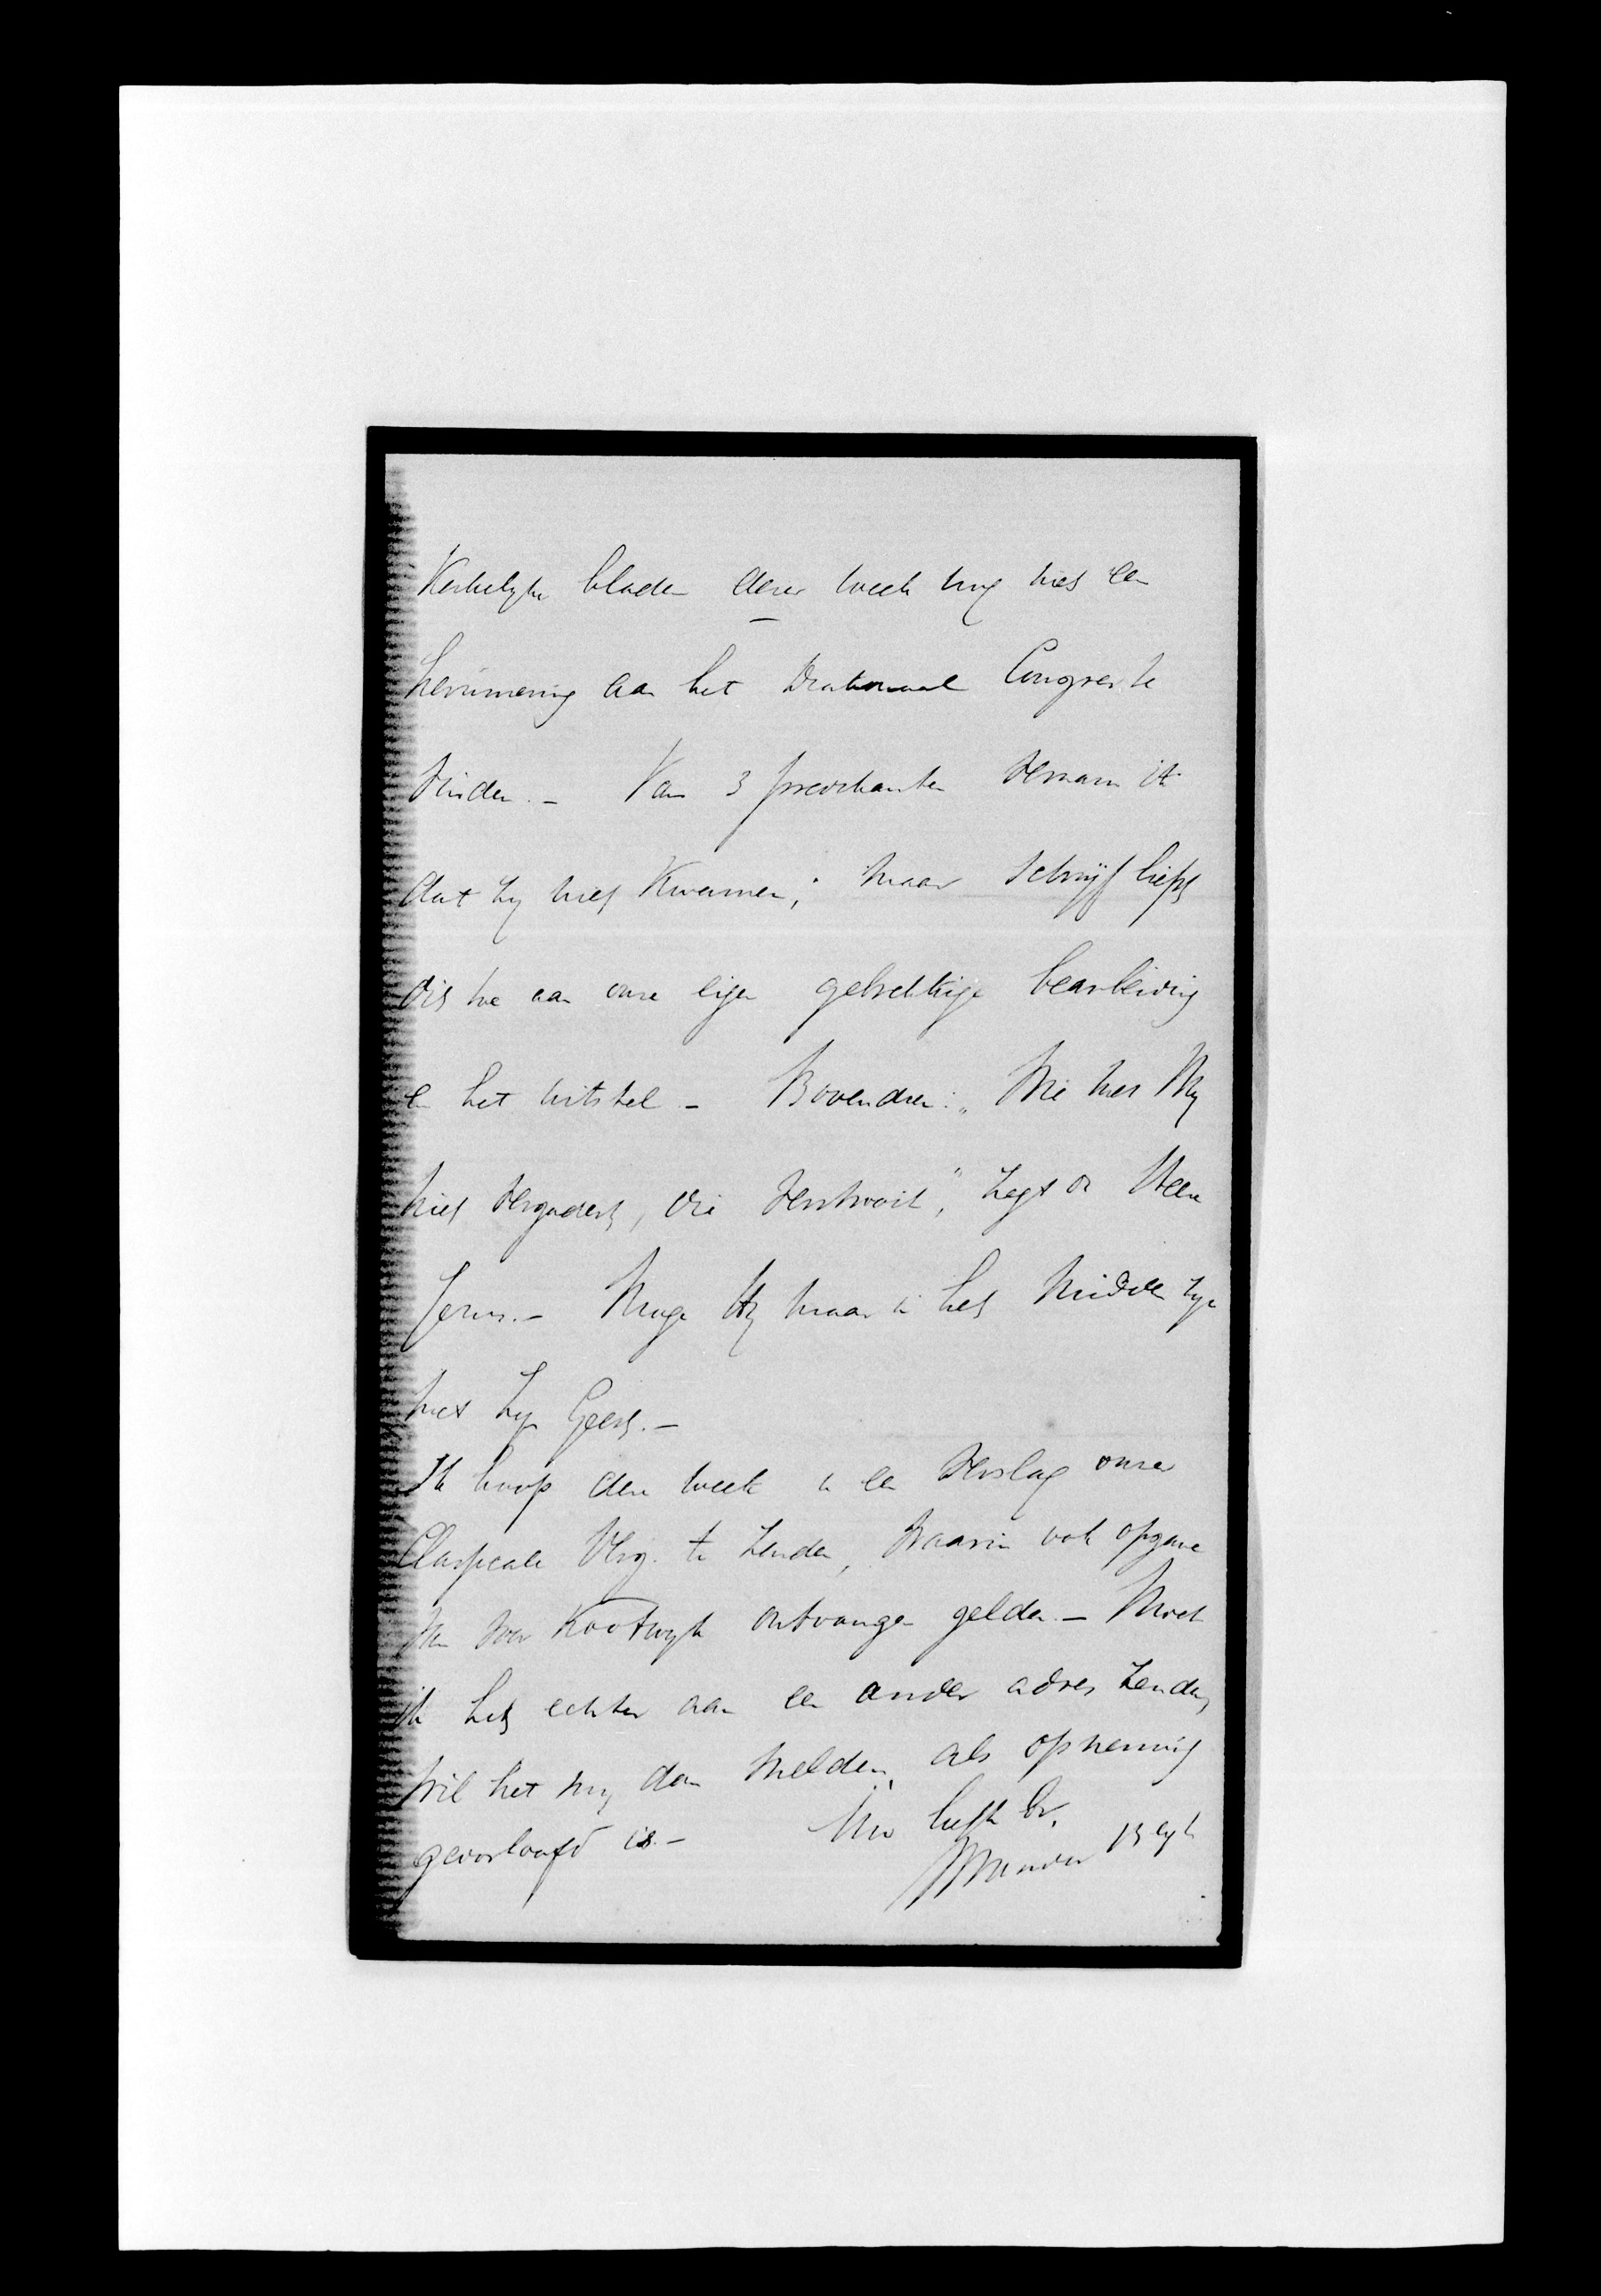 Kerkelyke bladen dezer week nog niet een
herinnering aan het Diakonaal Congres te
vinden. - Van 3 predikanten vernam ik
dat zy niet kwamen; maar schrijf liefst
dit toe aan onze eigen gebrekkige bearbeiding
en het uitstel - Bovendien: "Wie met My
niet vergadert, die verstrooit", zegt de Heere
Jezus. - Moge Hy maar in het midden zyn
met Zyn Geest. -
Ik hoop deze week u een verslag onzer
Classicale Verg. te zenden, waarin ook opgave
van voor Kootwyk ontvangen gelden. - Moet
ik het echter aan een ander adres zenden,
wil het my dan melden, als opneming
geoorloofd is. - Uw liefh. br.